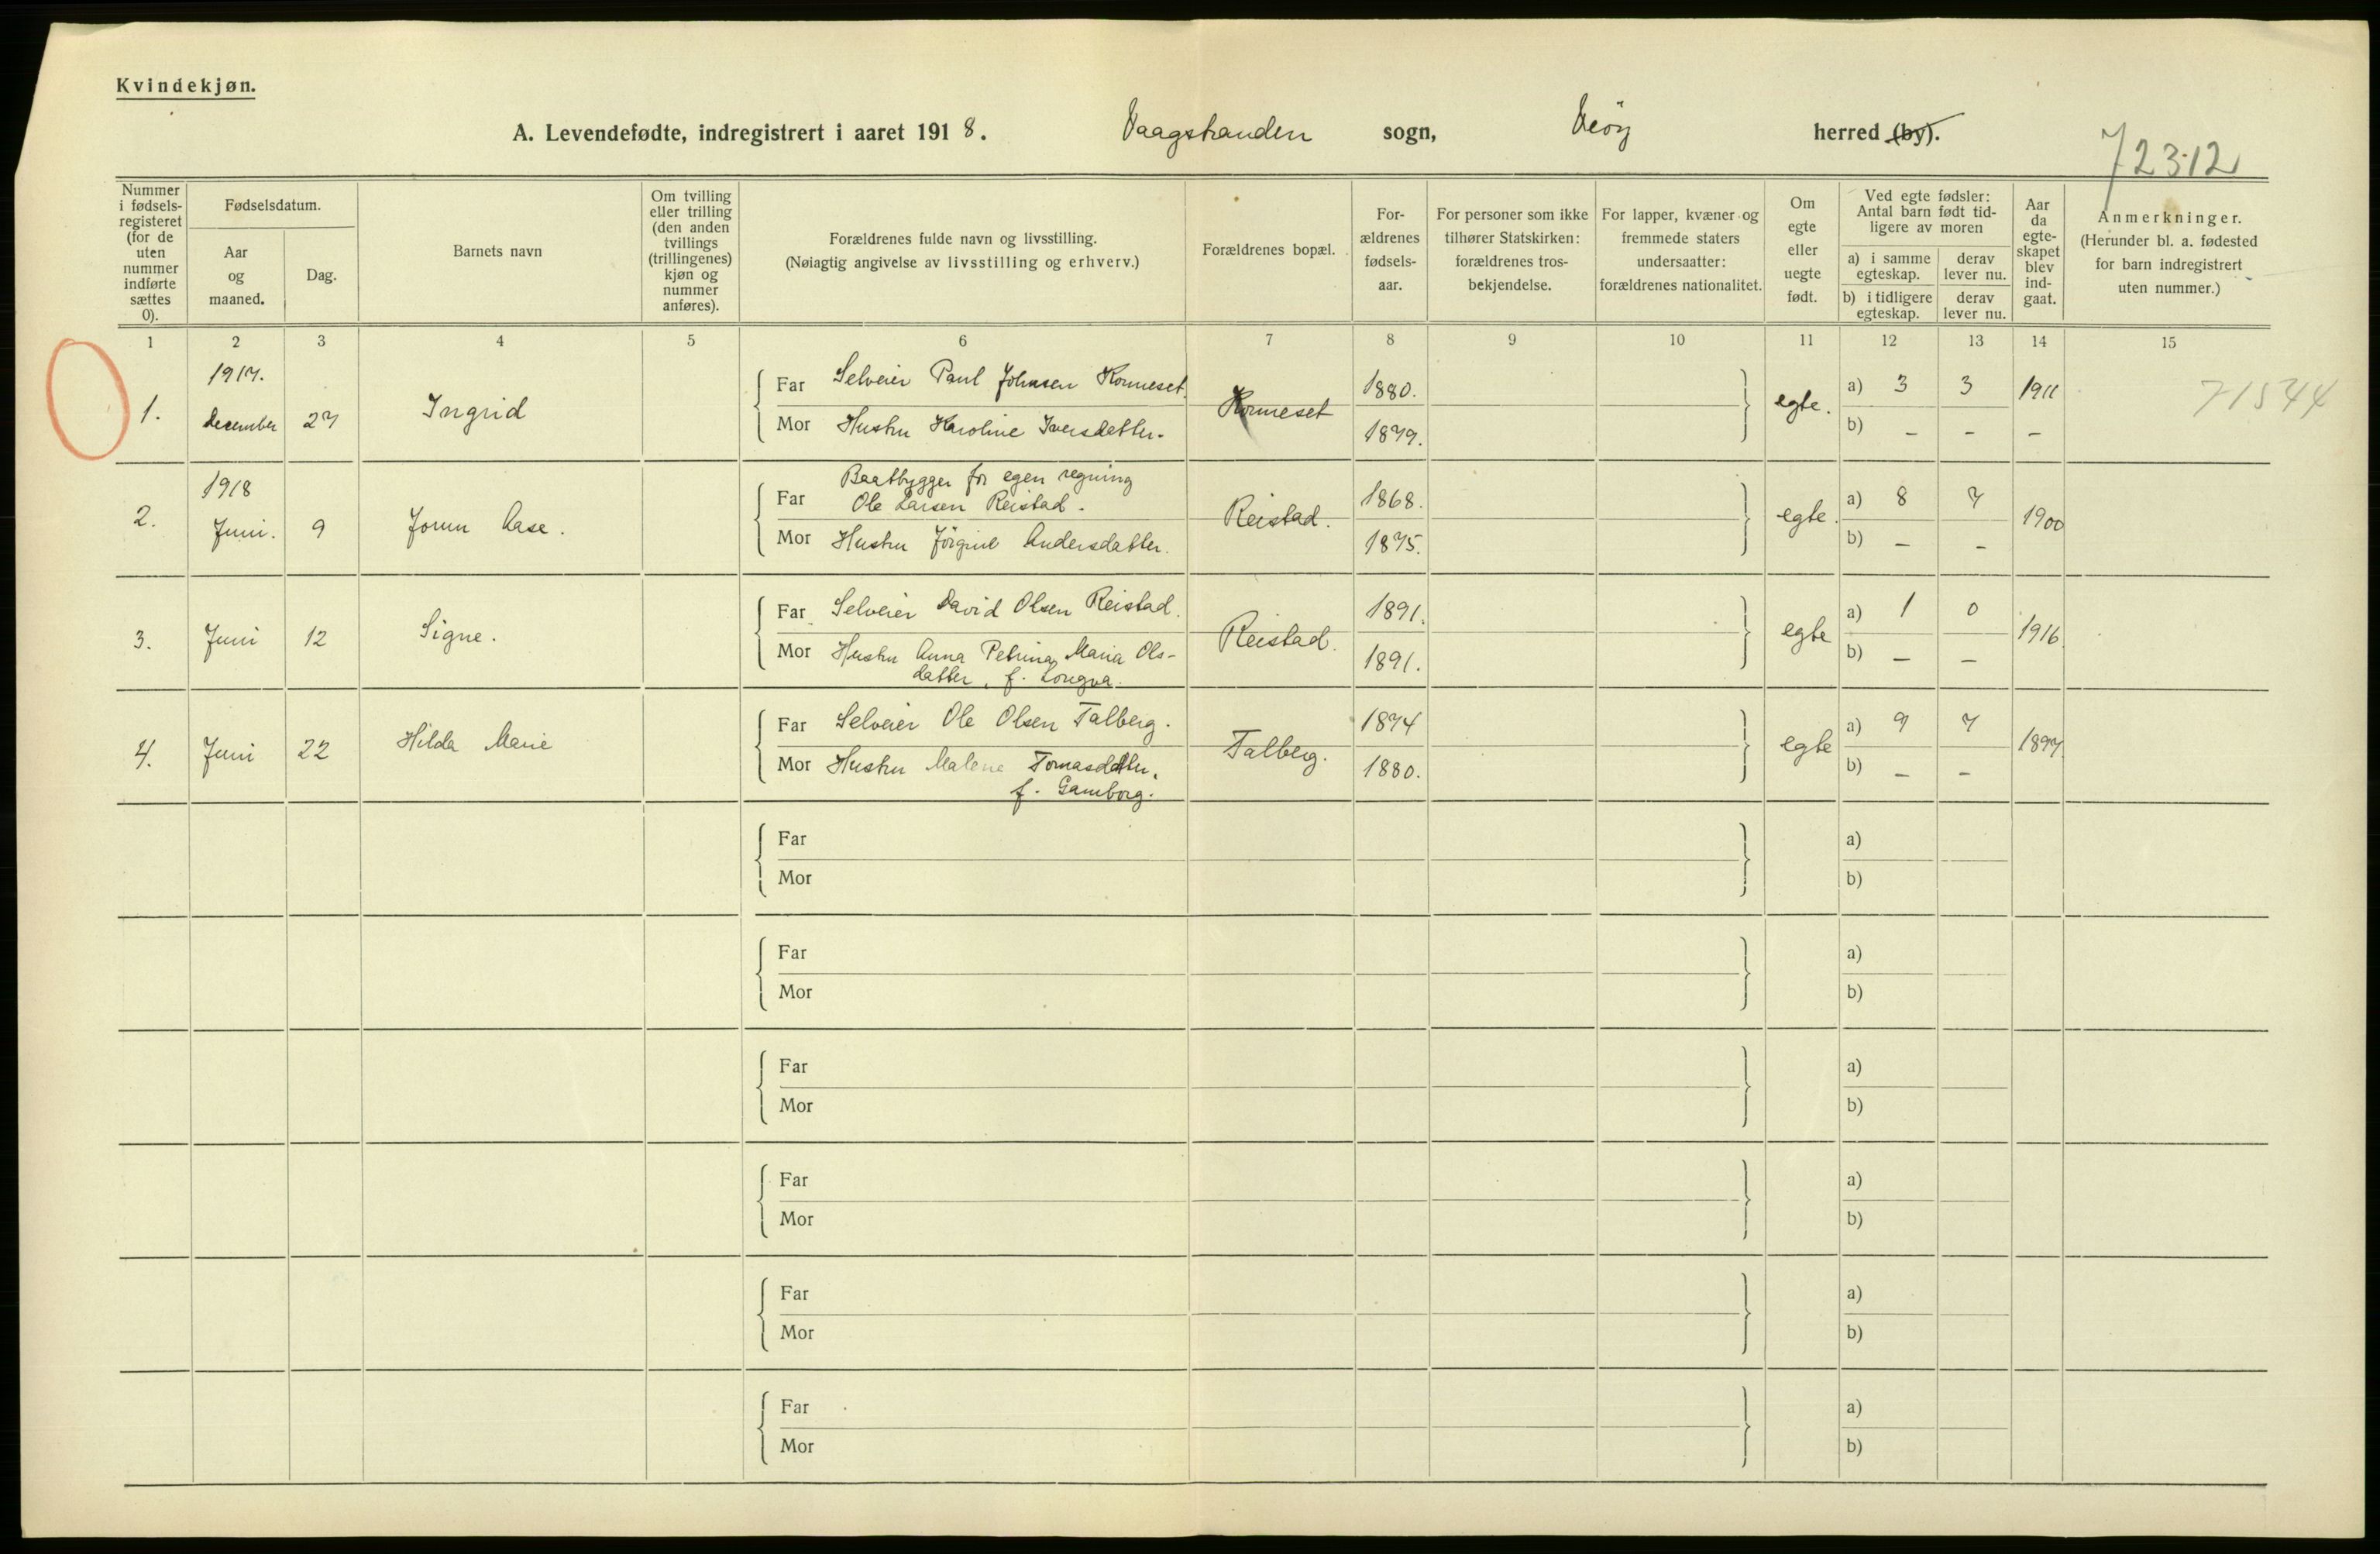 Kvindekjøn.
A. Levendefødte, indregistrert i aaret 1918. Vaagstranden sogn, Veöy herred (by).
72312
Nummer i fødsels-registeret (for de uten nummer indførte sættes 0).
Fødselsdatum.
Aar og maaned.
Dag.
Barnets navn
Om tvilling eller trilling (den anden tvillings (trillingenes) kjøn og nummer anføres).
Forældrenes fulde navn og livsstilling.
(Nøiagtig angivelse av livsstilling og erhverv.)
Forældrenes bopæl.
For-ældrenes fødsels-aar.
For personer som ikke tilhører Statskirken: forældrenes tros-bekjendelse.
For lapper, kvæner og fremmede staters undersaatter: forældrenes nationalitet.
Om egte eller uegte født.
Ved egte fødsler: Antal barn født tid-ligere av moren
a) i samme egteskap.
derav lever nu.
b) i tidligere egteskap.
derav lever nu.
Aar da egte-skapet blev ind-gaat.
Anmerkninger.
(Herunder bl. a. fødested for barn indregistrert uten nummer.)
1 2 3 4 5 6 7 8 9 10 11 12 13 14 15
1917.
Far Selveier Paul Johnsen Konneset. 1880. a) 3 3 1911
1. December 27 Ingrid Konneset egte. 71544
Mor Hustru Karoline Iversdatter. 1879. b) – – –
1918
Baatbygger for egen regning
Far Ole Larsen Reistad. 1868. a) 8 7
2. Juni. 9 Jorun Aase. Reistad. egte. 1900
Mor Hustru Jörgine Andersdatter. 1875. b) – –
Far Selveier David Olsen Reistad. 1891. a) 1 0
3. Juni 12 Signe. Reistad. egte 1916
Mor Hustru Anna Petrina Maria Ols- 1891. b) – –
datter, f. Longva.
Far Selveier Ole Olsen Talberg. 1874 a) 9 7
4. Juni 22 Hilda Marie Talberg. egte 1897
Mor Hustru Malene Tomasdatter, 1880. b) – –
f. Gamborg.
Far a)
Mor b)
Far a)
Mor b)
Far a)
Mor b)
Far a)
Mor b)
Far a)
Mor b)
Far a)
Mor b)